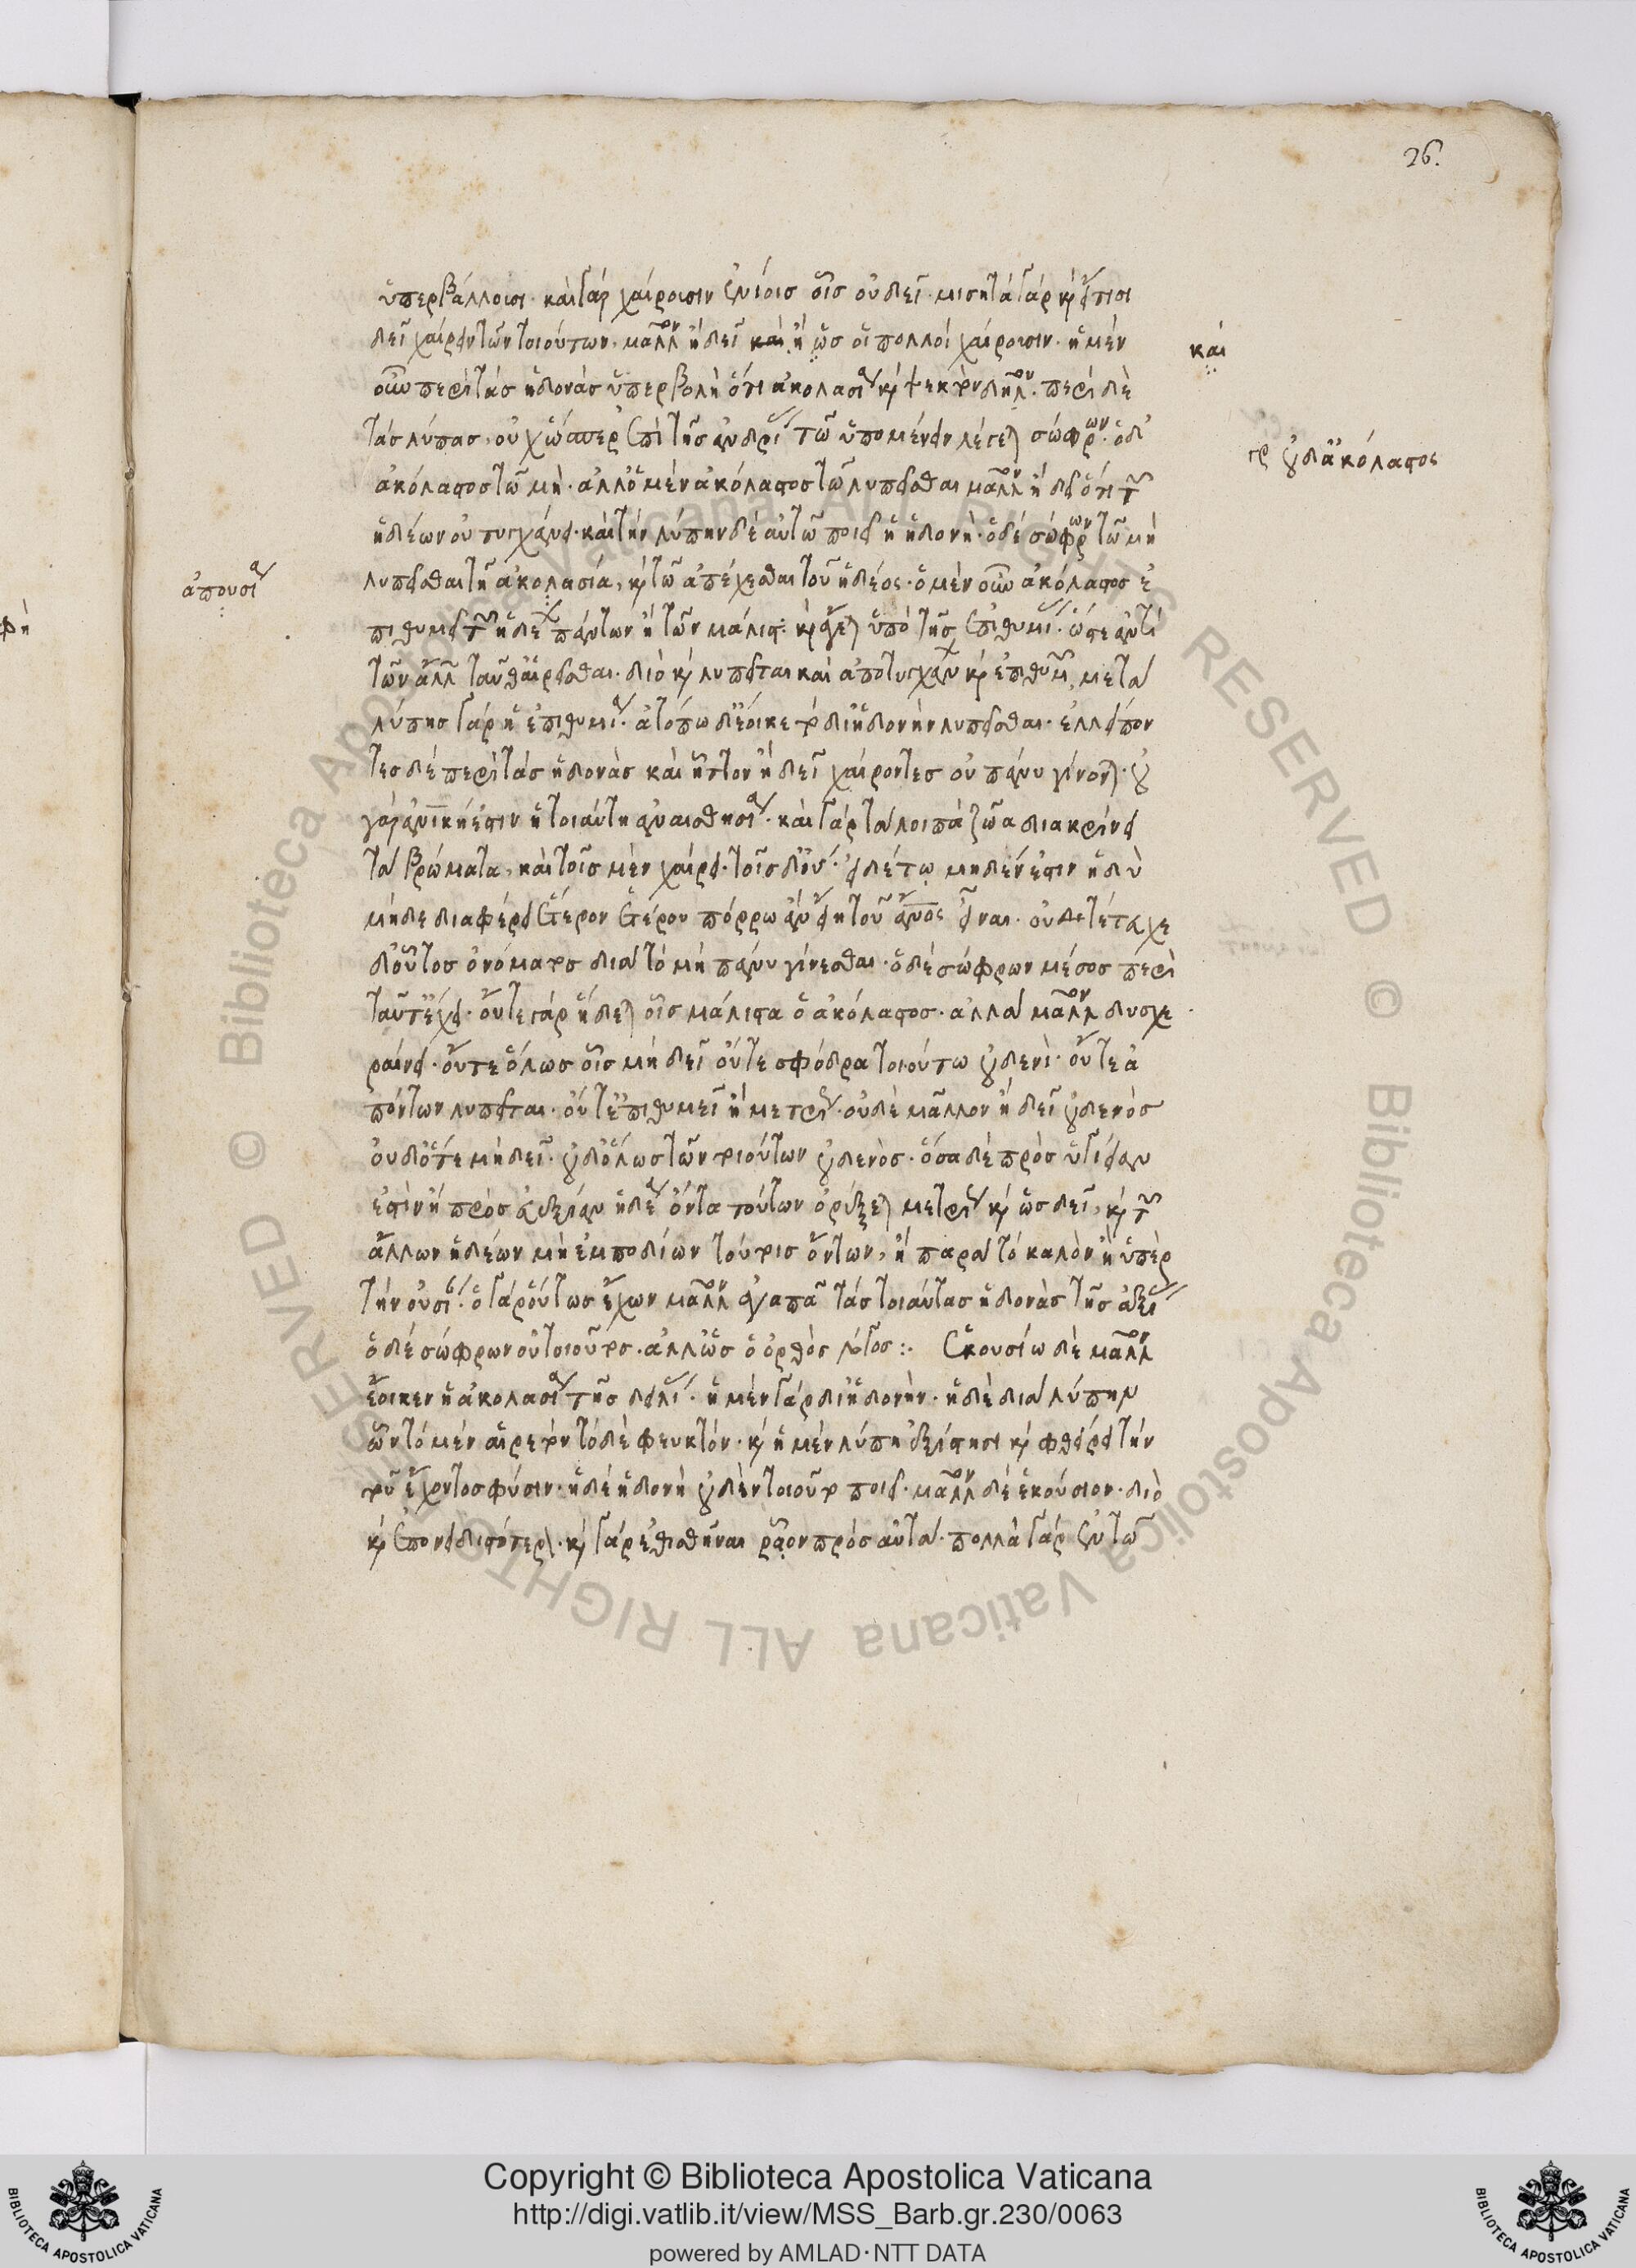 26.
ὑπερβάλλουσι· καὶ γὰρ χαίρουσιν ἐνίοις οἷς οὐ δεῖ· μισητὰ γάρ καὶ εἴ τισι
δεῖ χαίρειν τῶν τοιούτων, μᾶλλον ἢ δεῖ καὶ ἢ ὡς οἱ πολλοὶ χαίρουσιν· ἡ μὲν
καὶ
οὖν περὶ τὰς ἡδονὰς ὑπερβολὴ ὅτι ἀκολασία καὶ ψεκτὸν δῆλον· περὶ δὲ
τὰς λύπας, οὐχ ὥσπερ ἐπὶ τῆς ἀνδρείας τῶ ὑπομένειν λέγεται σώφρων· ὁ δ'
γρ οὐδ' ἀκόλαστος
ἀκόλαστος τῶ μή· ἀλλ' ὁ μὲν ἀκόλαστος τῶ λυπεῖσθαι μᾶλλον ἢ δεῖ ὅτι τῶν
ἡδέων οὐ τυγχάνει· καὶ τὴν λύπην δὲ αὐτῶ ποιεῖ ἡ ἡδονή· ὁ δὲ σώφρων τῶ μὴ
ἀπουσία
λυπεῖσθαι τῆ ἀκολασία, καὶ τῶ ἀπέχεσθαι τοῦ ἡδέος· ὁ μὲν οὖν ἀκόλαστος ἐ
πιθυμεῖ τῶν ἡδέων πάντων ἢ τῶν μάλιστα· καὶ ἄγεται ὑπὸ τῆς ἐπιθυμίας· ὥστε ἀντὶ
τῶν ἄλλων ταῦθ' αἱρεῖσθαι· διὸ καὶ λυπεῖται καὶ ἀποτυγχάνων καὶ ἐπιθυμῶν, μετὰ
λύπης γὰρ ἡ ἐπιθυμία· ἀτόπω δ' ἔοικε τὸ δι' ἡδονὴν λυπεῖσθαι· ἐλλείπον
τες δὲ περὶ τὰς ἡδονὰς καὶ ἧττον ἢ δεῖ χαίροντες οὐ πάνυ γίνονται· οὐ
γὰρ ἀνθρωπική ἐστιν ἡ τοιαύτη ἀναισθησία· καὶ γὰρ τὰ λοιπὰ ζῶα διακρίνει
τὰ βρώματα, καὶ τοῖς μὲν χαίρει· τοῖς δ' οὔ· εἰ δέ τω μηδέν ἐστιν ἡδὺ
μήδε διαφέρει ἕτερον ἑτέρου πόρρω ἂν εἴη τοῦ ἄνθρωπος εἶναι· οὐ τέτυχε
δ' οὗτος ὀνόματος διὰ τὸ μὴ πάνυ γίνεσθαι· ὁ δὲ σώφρων μέσος περὶ
ταῦτ' ἔχει· οὔτε γὰρ ἥδεται οἷς μάλιστα ὁ ἀκόλαστος· ἀλλὰ μᾶλλον δυσχε
ραίνει· οὔτε ὅλως οἷς μὴ δεῖ οὔτε σφόδρα τοιούτω οὐδενί· οὔτε ἀ
πόντων λυπεῖται· οὔτ' ἐπιθυμεῖ ἢ μετρίως· οὐδὲ μᾶλλον ἢ δεῖ οὐδενὸς
οὐδ' ὅτε μὴ δεῖ· οὐδ' ὅλως τῶν τοιούτων οὐδενὸς· ὅσα δὲ πρὸς ὑγίειαν
ἐστὶν ἢ πρὸς εὐεξίαν ἡδέα ὄντα τούτων ὀρέξεται μετρίως καὶ ὡς δεῖ, καὶ τῶν
ἄλλων ἡδέων μὴ ἐμποδίων τούτοις ὄντων, ἢ παρὰ τὸ καλὸν ἢ ὑπὲρ
τὴν οὐσίαν· ὁ γὰρ οὕτως ἔχων μᾶλλον ἀγαπᾶ τὰς τοιαύτας ἡδονὰς τῆς ἀξίας
ὁ δὲ σώφρων οὐ τοιοῦτος· ἀλλ' ὡς ὁ ὀρθὸς λόγος :· Ἑκουσίω δὲ μᾶλλον
ἔοικεν ἡ ἀκολασία τῆς δειλίας· ἡ μὲν γὰρ δι' ἡδονὴν· ἡ δὲ διὰ λύπην
ὧν τὸ μὲν αἱρετὸν τὸ δὲ φευκτόν· καὶ ἡ μὲν λύπη ἐξίστησι καὶ φθείρει τὴν
τοῦ ἔχοντος φύσιν· ἡ δὲ ἡδονὴ οὐδὲν τοιοῦτο ποιεῖ· μᾶλλον δὲ ἑκούσιον· διὸ
καὶ ἐπονειδιστότερον· καὶ γὰρ ἐθισθῆναι ῥᾷον πρὸς αὐτά· πολλὰ γὰρ ἐν τῶ
Copyright © Biblioteca Apostolica Vaticana
http://digi.vatlib.it/view/MSS_Barb.gr.230/0063
powered by AMLAD·NTT DATA